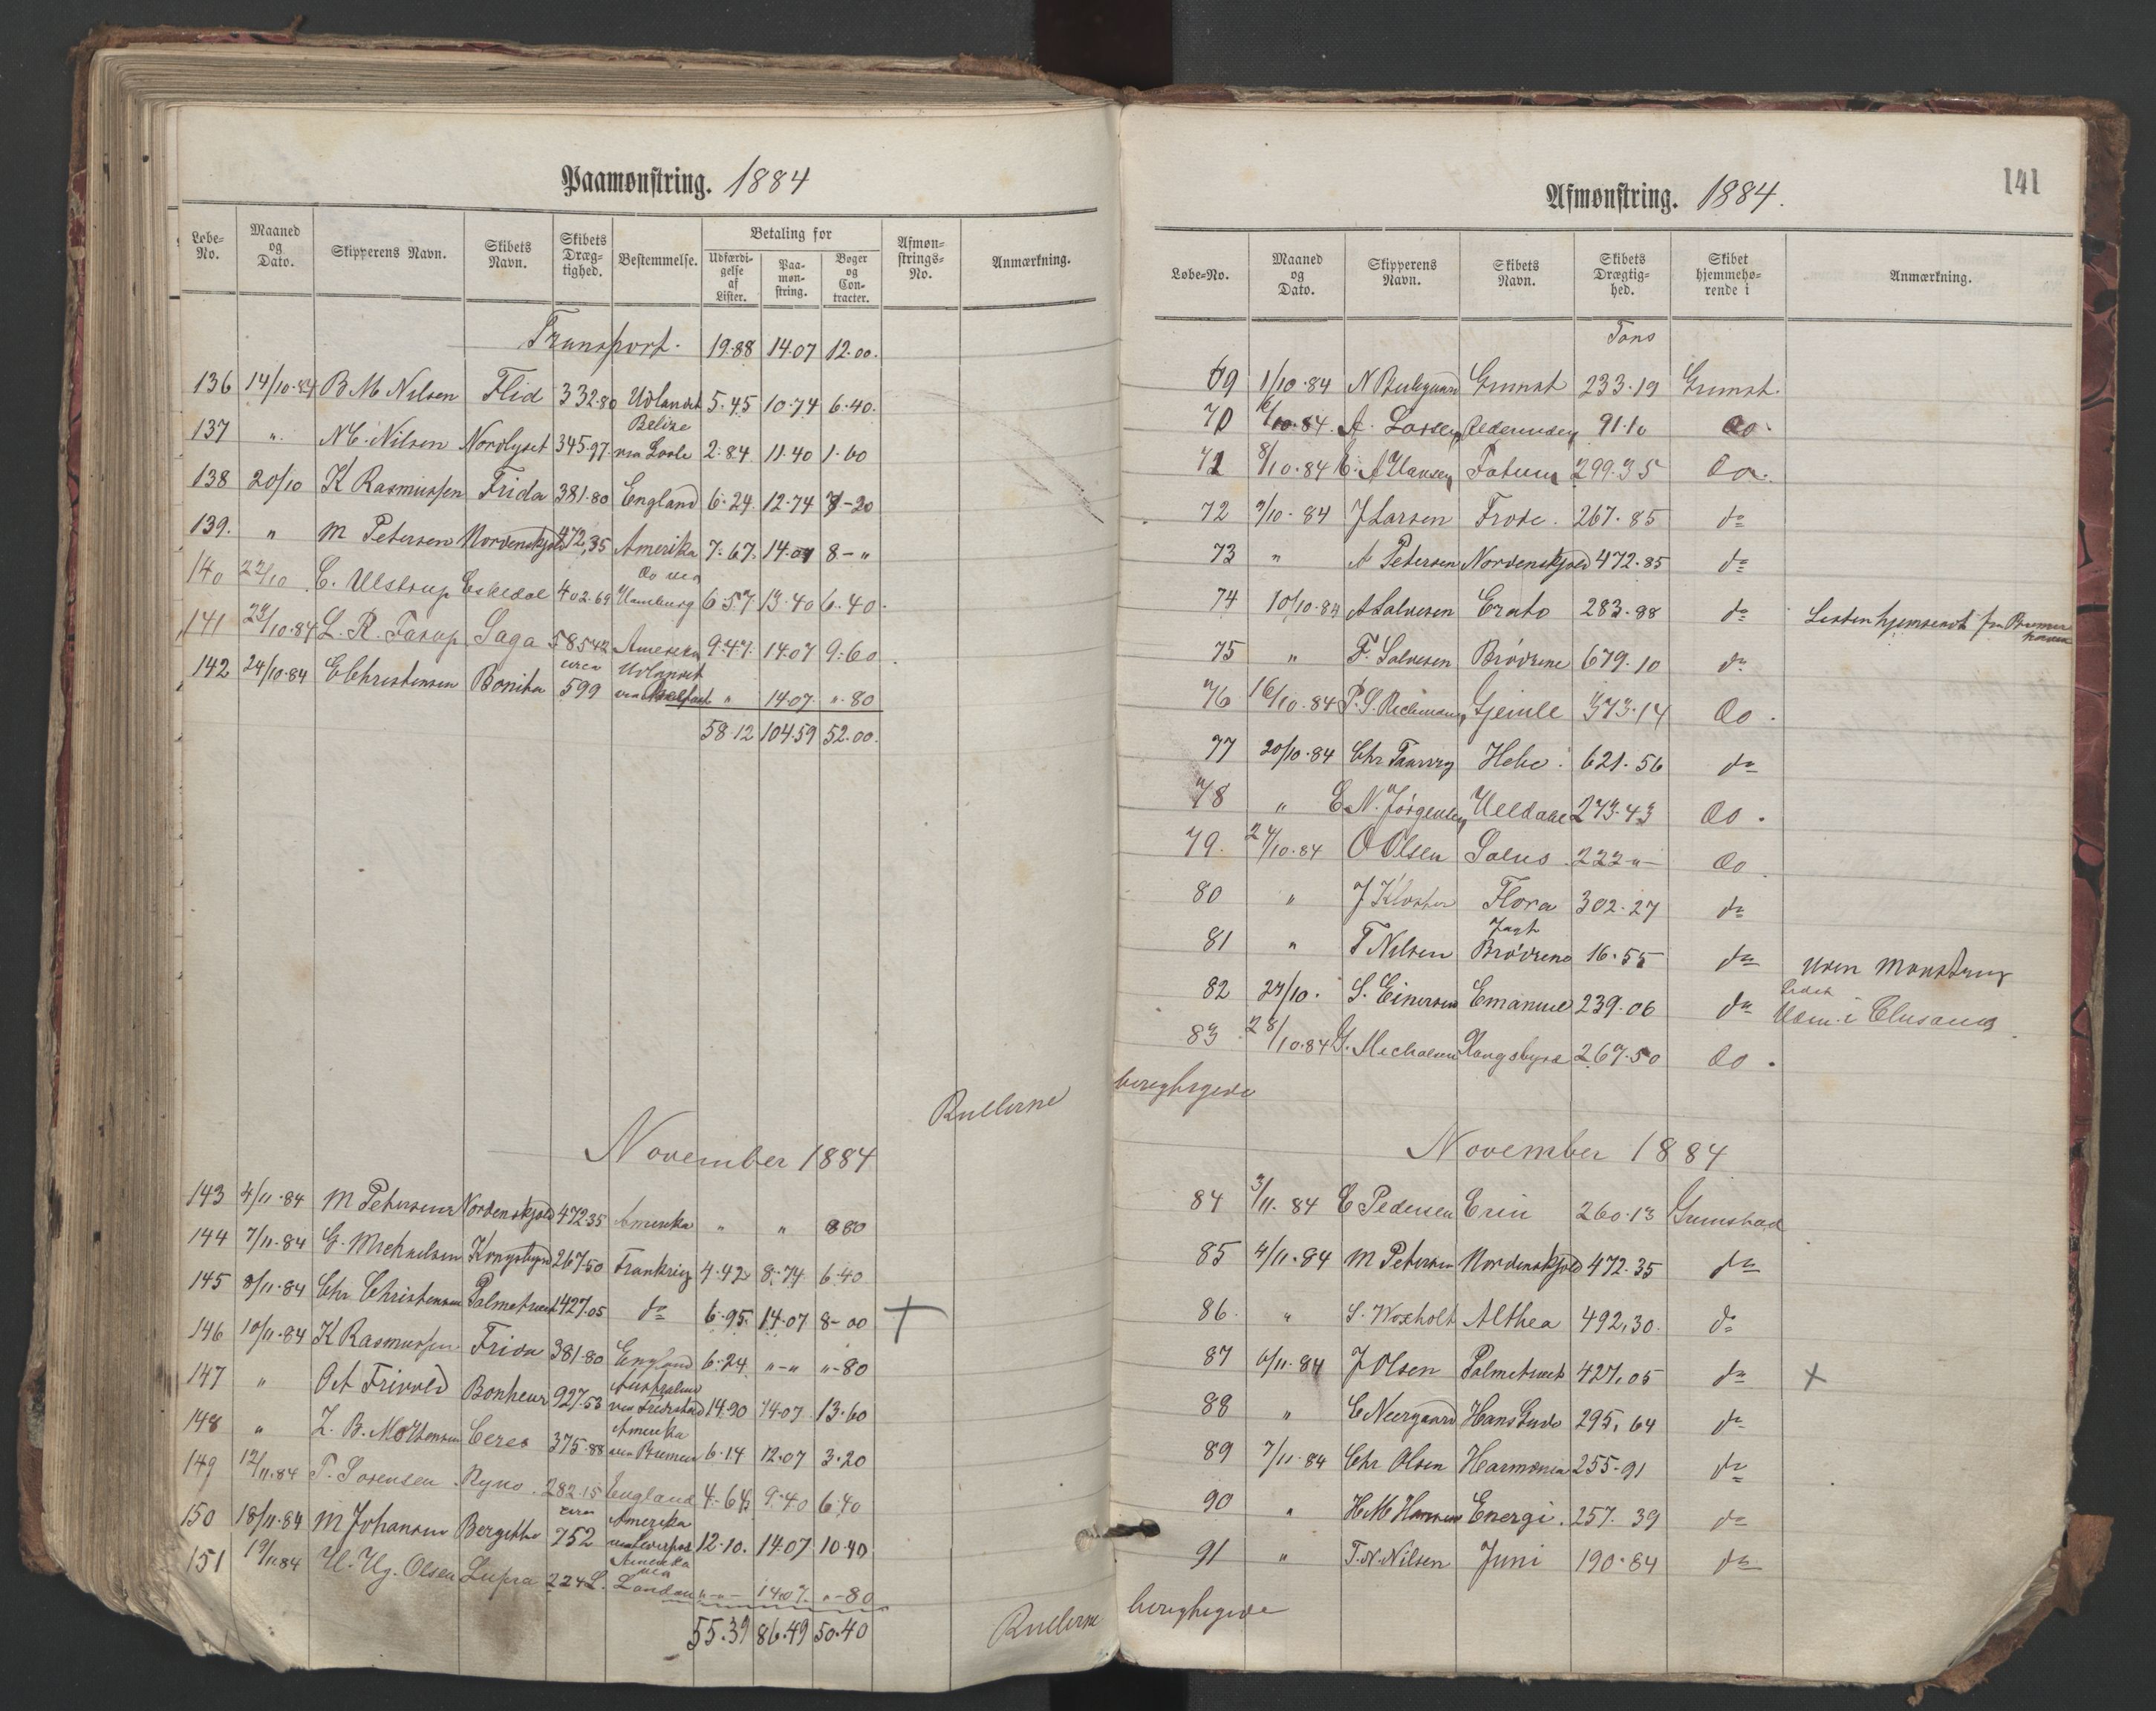 Paamønstring. 1884
Løbe-No. | Maaned og Dato. | Skipperens Navn. | Skibets Navn. | Skibets Dræg-tighed. | Bestemmelse. | Betaling for | Udfærdi-gelse af Lister. | Paa-møn-string. | Bøger og Con-tracter. | Afmøn-strings-No. | Anmærkning.
Transport. 19.88 14.07 12.00.
136 14/10.84 B M Nilsen Flid 332.80 Udlandet 5.45 10.74 6.40.
137 ". N C. Nilsen Nordlyset 345.97. Belize via 2.84 11.40 1.60
138 20/10 K Rasmussen Frida 381.80 England 6.24 12.74 7-20
139. " M Petersen Nordenskjold 472,35 Amerika 7.67. 14.07 8-"
140 22/10 C. Ulstrup Eskedal 402.69 Do via Hamburg 6.57 13.40 6.40.
141 23/10.84 L. R. Tarup Saga 585.42 Amerika 9.47. 14.07 9.60
142 24/10.84 E Christensen Bonita circa 599 Udlandet via Belfast " 14.07. ".80
58.12 104.59 52.00.
Rullerne
November 1884
143 4/11.84 M Petersen Nordenskjold 472.35 Amerika " " 880
144 7/11.84 G. Michaelsen Kongsbyrd 267.50 Frankrig 4.42 8.74 6.40
145 8/11.84 Chr Christensen Palmetræet 427.05 do 6.95. 14.07 8-00 +
146 10/11.84 K Rasmussen Frida 381.80 England 6.24 "-" "-80
147 " Frivold Bonheur 927.53 Australien via Fredrikstad 14.90 14.07 13.60
148 " Z. B. Mortensen Ceres 375.88 Amerika via Bremen 6.14 12.07 3.20
149 12/11.84 T. Sørensen Ryno. 282.15 England 4.64 9.40 6.40
150 18/11.84 M Johansen Bergitthe circa 752 Amerika via Liverpool 12.10. 14.07 10.40
151 19/11.84 Olsen 224 Amerika via London "-" 14.07. "-80
55.39 86.49 50.40
Rullerne
Afmønstring. 1884.
141
Løbe-No. | Maaned og Dato. | Skipperens Navn. | Skibets Navn. | Skibets Drægtig-hed. | Skibet hjemmehø-rende i | Anmærkning.
Tons
69 1/10.84 N Grimst 233.19 Grimst.
70 6/10.84. A. Larsen 91.10 Do.
71 8/10.84 C. A Hansen Fatum 299.35 Do.
72 9/10.84 J Larsen Frode. 267.85 do
73 " A Petersen Nordenskjold 472.85 do
74 10/10.84 A Salvesen Erato 283.88 do Listen hjemsendt fra Bremerhaven
75 " F. Salvesen Brødrene 679.10 do
76 16/10.84 P. S. Gjemle 373.14 Do.
77 20/10.84 Chr Hebe. 621.56 do
78 " E N. Jørgensen 273.43 Do.
79. 24/10.84 O Olsen Salus. 222-"- Do.
80 " J Kloster Flora 302.27 do
81 " T Nilsen Jagt Brødrene 16.55 do Uden Mønstring
82 27/10. S. Einersen Emanuel 239.06 do
83 28/10.84 G. Michaelsen Kongsbyrd 267.50 Do.
berigtigede
November 1884
84 3/11.84 E Pedersen Erin 260.13 Grimstad
85 4/11.84 M Petersen Nordenskjold 472.35 do
86. " S. Woxholt Althea 492,30. do
87 6/11.84 J Olsen Palmetræet 427,05 do +
88 " C Neergaard Hans Gude 295,64 do
89 7/11.84 Chr Olsen Harmonia 255.91 do
90 " H M Hansen Energi. 257.39 do
91 " T. N. Nilsen Juni 190.84 do
berigtigede